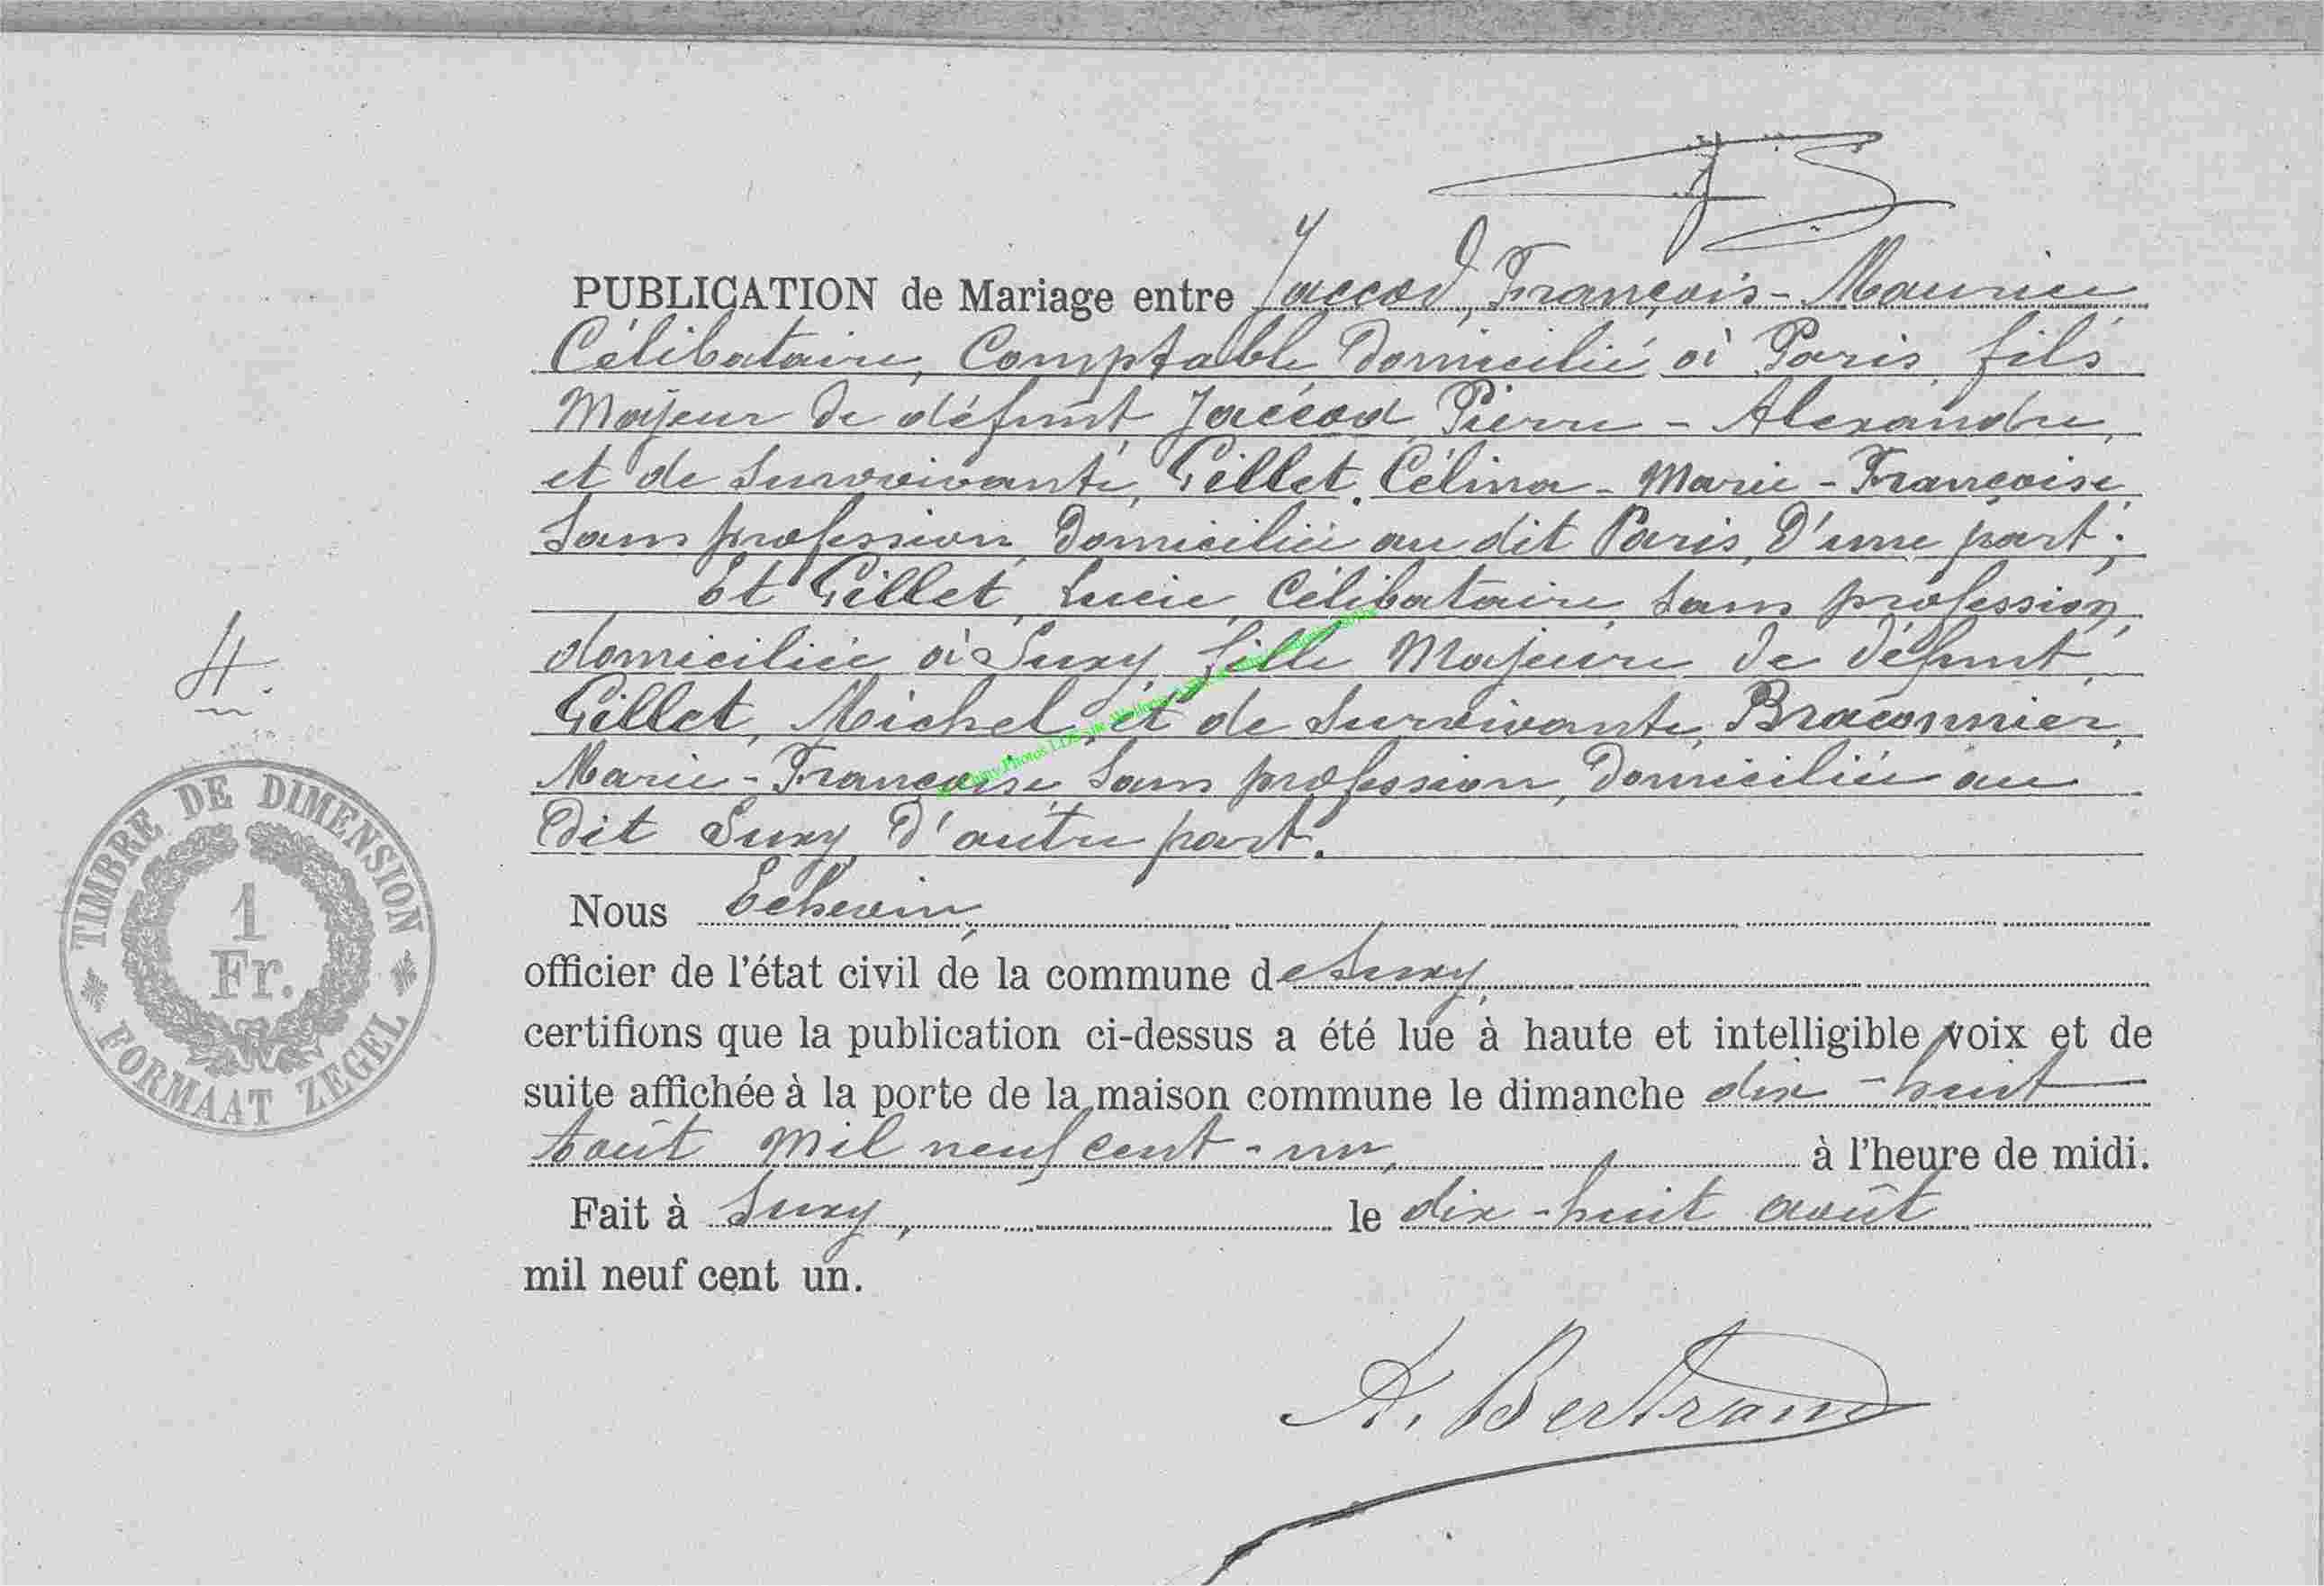 PUBLICATION de Mariage entre Jaccod, François-Maurice
Célibataire, Comptable domicilié à Paris, fils
Majeur de défunt Jaccod Pierre - Alexandre,
et de Survivante, Gillet, Célina - Marie - Françoise
Sans profession domiciliée au dit Paris, D'une part;
Et Gillet, Lucie, Célibataire, Sans profession,
domiciliée à Suxy, fille Majeure de défunt
Gillet, Michel, et de Survivante, Braconnier,
Marie-Françoise Sans profession, domiciliée au
Dit Suxy D'autre part.
4.
TIMBRE DE DIMENSION
1
Fr.
FORMAAT ZEGEL
Nous Echevin,
officier de l'état civil de la commune de Suxy,
certifions que la publication ci-dessus a été lue à haute et intelligible voix et de
suite affichée à la porte de la maison commune le dimanche dix - huit
août mil neuf cent - un, à l'heure de midi.
Fait à Suxy, le dix - huit août
mil neuf cent un.
A. Bertrand